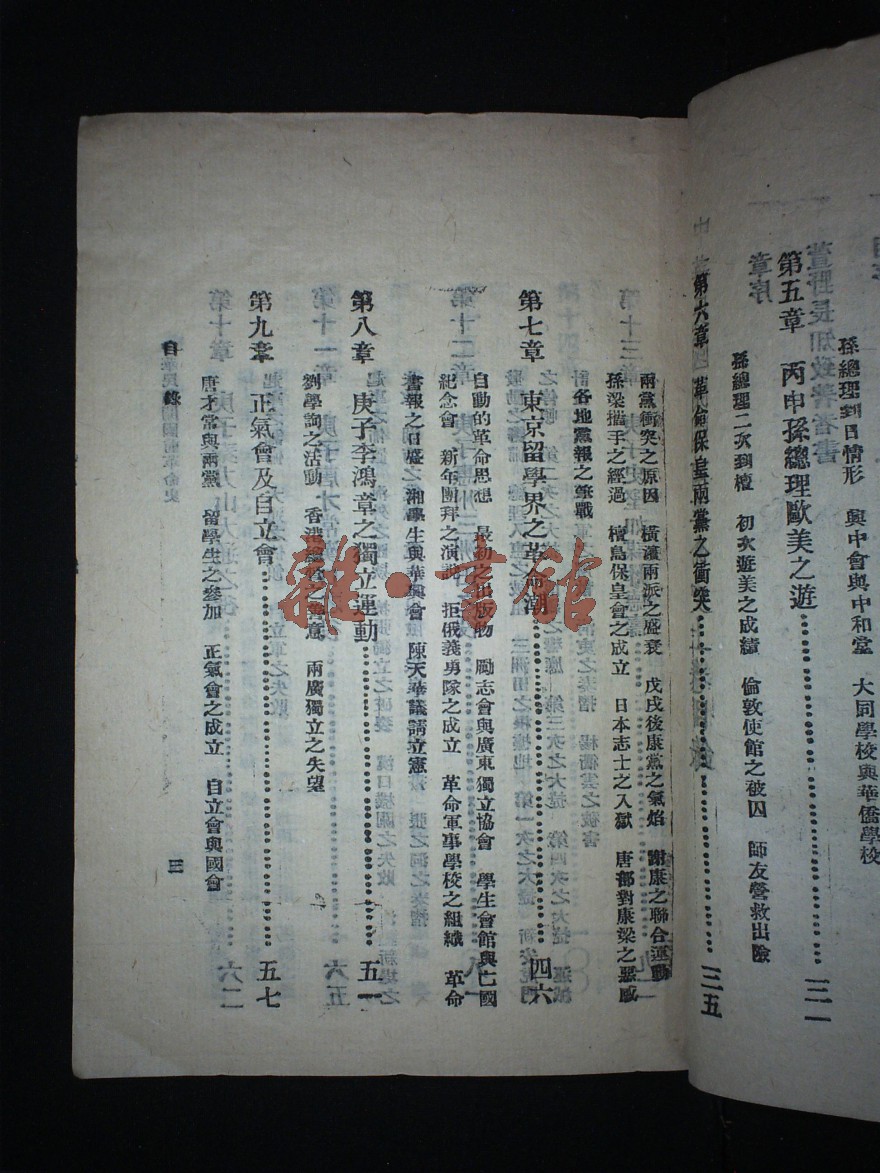 孫總理到日情形　興中會與中和堂　大同學校與華僑學校
第五章　丙申孫總理歐美之遊
孫總理二次到檀　初次遊美之成績　倫敦使館之被囚　師友營救出險
第六章　革命保皇兩黨之衝突……三五
兩黨衝突之原因　橫濱兩派之盛衰　戊戌後康黨之氣焰　謝康之聯合運動
孫梁攜手之經過　檀島保皇會之成立　日本志士之入獄　唐部對康梁之惡感
各地黨報之筆戰
第七章　東京留學界之革命潮……四六
自動的革命思想　最初之出版物　勵志會與廣東獨立協會　學生會館與亡國
紀念會　新年團拜之演說　拒俄義勇隊之成立　革命軍事學校之組織　革命
書報之日盛　湘學生與華興會　陳天華議請立憲
第八章　庚子李鴻章之獨立運動……五一
劉學詢之活動　香港總督之善意　兩廣獨立之失望
第九章　正氣會及自立會……五七
唐才常與兩黨　留學生之參加　正氣會之成立　自立會與國會
目錄　三
雜·書館